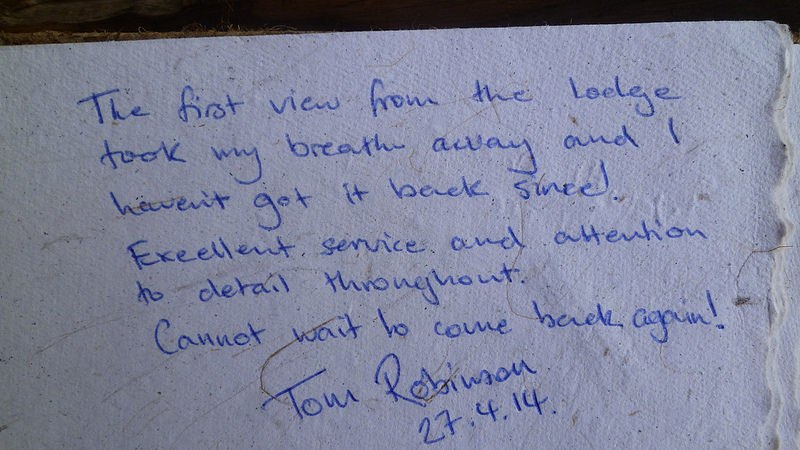 The first view from the Lodge
took my breath away and I
haven't got it back since!.
Excellent service and attention
to detail throughout.
Cannot wait to come back again!
Tom Robinson
27.4.14.